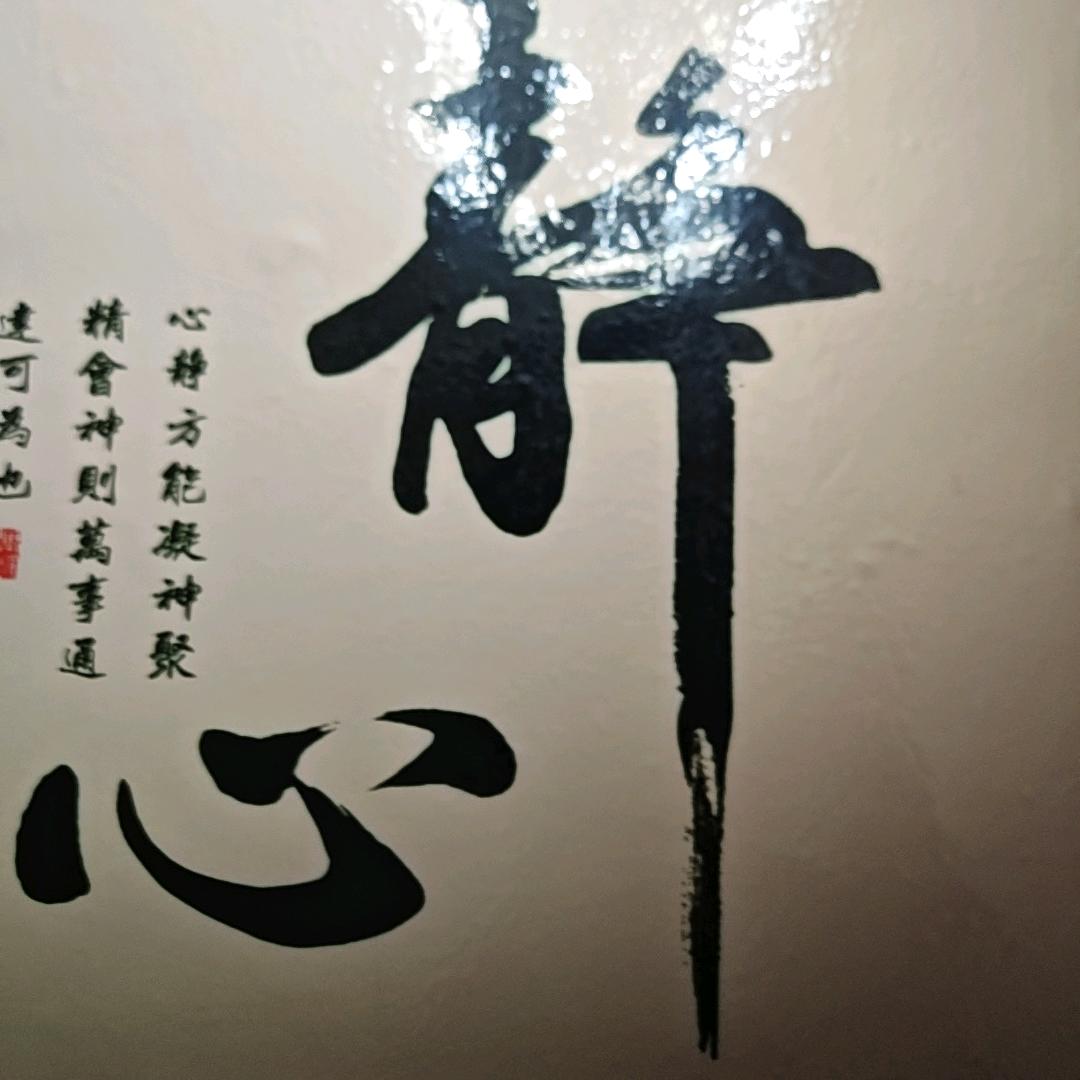 靜
心
心靜方能凝神聚
精會神則萬事通
達可為也